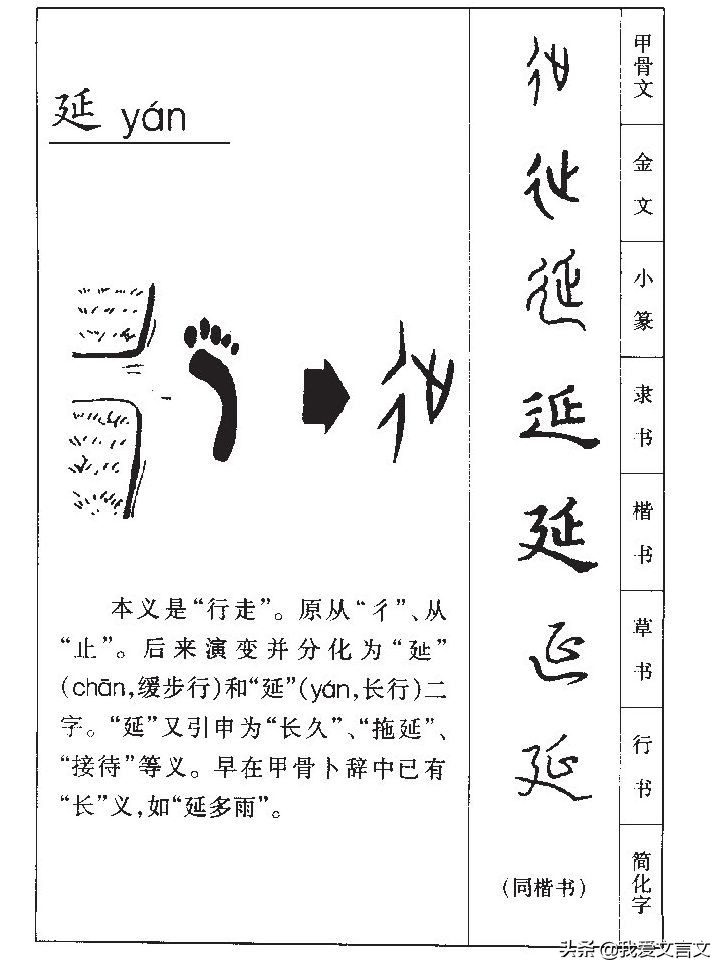 延 yán
本义是“行走”。原从“彳”、从
“止”。后来演变并分化为“㢟”
(chān,缓步行)和“延”(yán,长行)二
字。“延”又引申为“长久”、“拖延”、
“接待”等义。早在甲骨卜辞中已有
“长”义,如“延多雨”。
甲骨文
金文
小篆
延 隶书
延 楷书
延 草书
延 行书
(同楷书) 简化字
头条 @我爱文言文